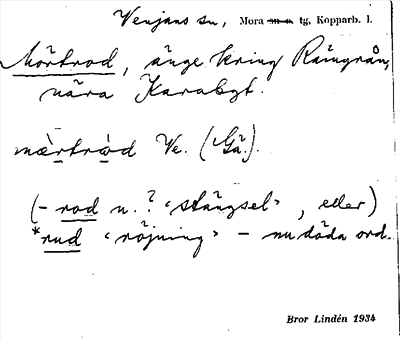 Venjans sn, Mora sn o. tg, Kopparb. l.
Mörtrod, änge kring Rämgrån,
nära Karabyt.
mærtròd Ve. (Gä.).
(- rod n.? "stängsel", eller)
*rud "röjning" - nu döda ord.
Bror Lindén 1934